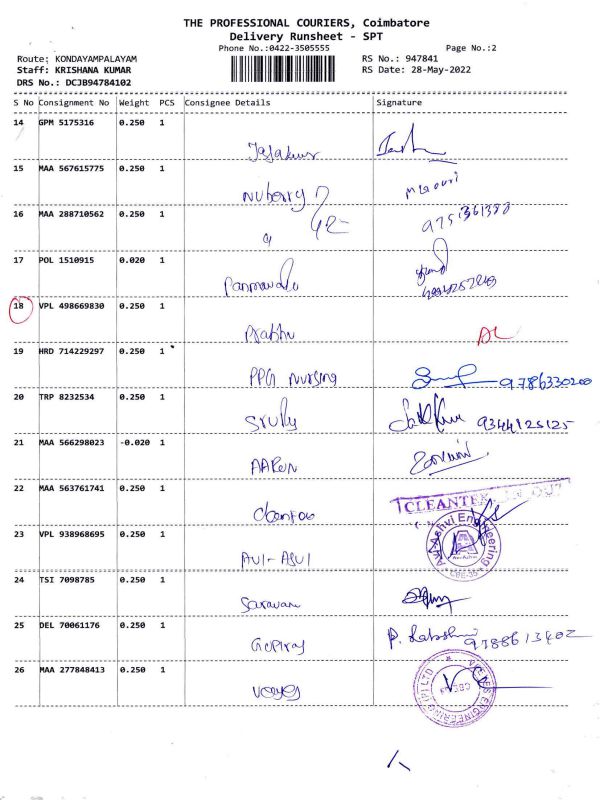 THE PROFESSIONAL COURIERS, Coimbatore
Delivery Runsheet - SPT
Phone No.:0422-3505555 Page No.:2
Route: KONDAYAMPALAYAM RS No.: 947841
Staff: KRISHANA KUMAR RS Date: 28-May-2022
DRS No.: DCJB94784102
S No Consignment No Weight PCS Consignee Details Signature
14 GPM 5175316 0.250 1
15 MAA 567615775 0.250 1
Nuberry
16 MAA 288710562 0.250 1
17 POL 1510915 0.020 1
18 VPL 498669830 0.250 1
Prabhu
19 HRD 714229297 0.250 1
PPG Nursing 9786330200
20 TRP 8232534 0.250 1
9344125125
21 MAA 566298023 -0.020 1
22 MAA 563761741 0.250 1
CLEANTEK
23 VPL 938968695 0.250 1
Avi-Ashvi Engineering
CBE-35
AVI-ASVI
24 TSI 7098785 0.250 1
Saravan
25 DEL 70061176 0.250 1
9788613402
26 MAA 277848413 0.250 1
ENGINEERING (P) LTD